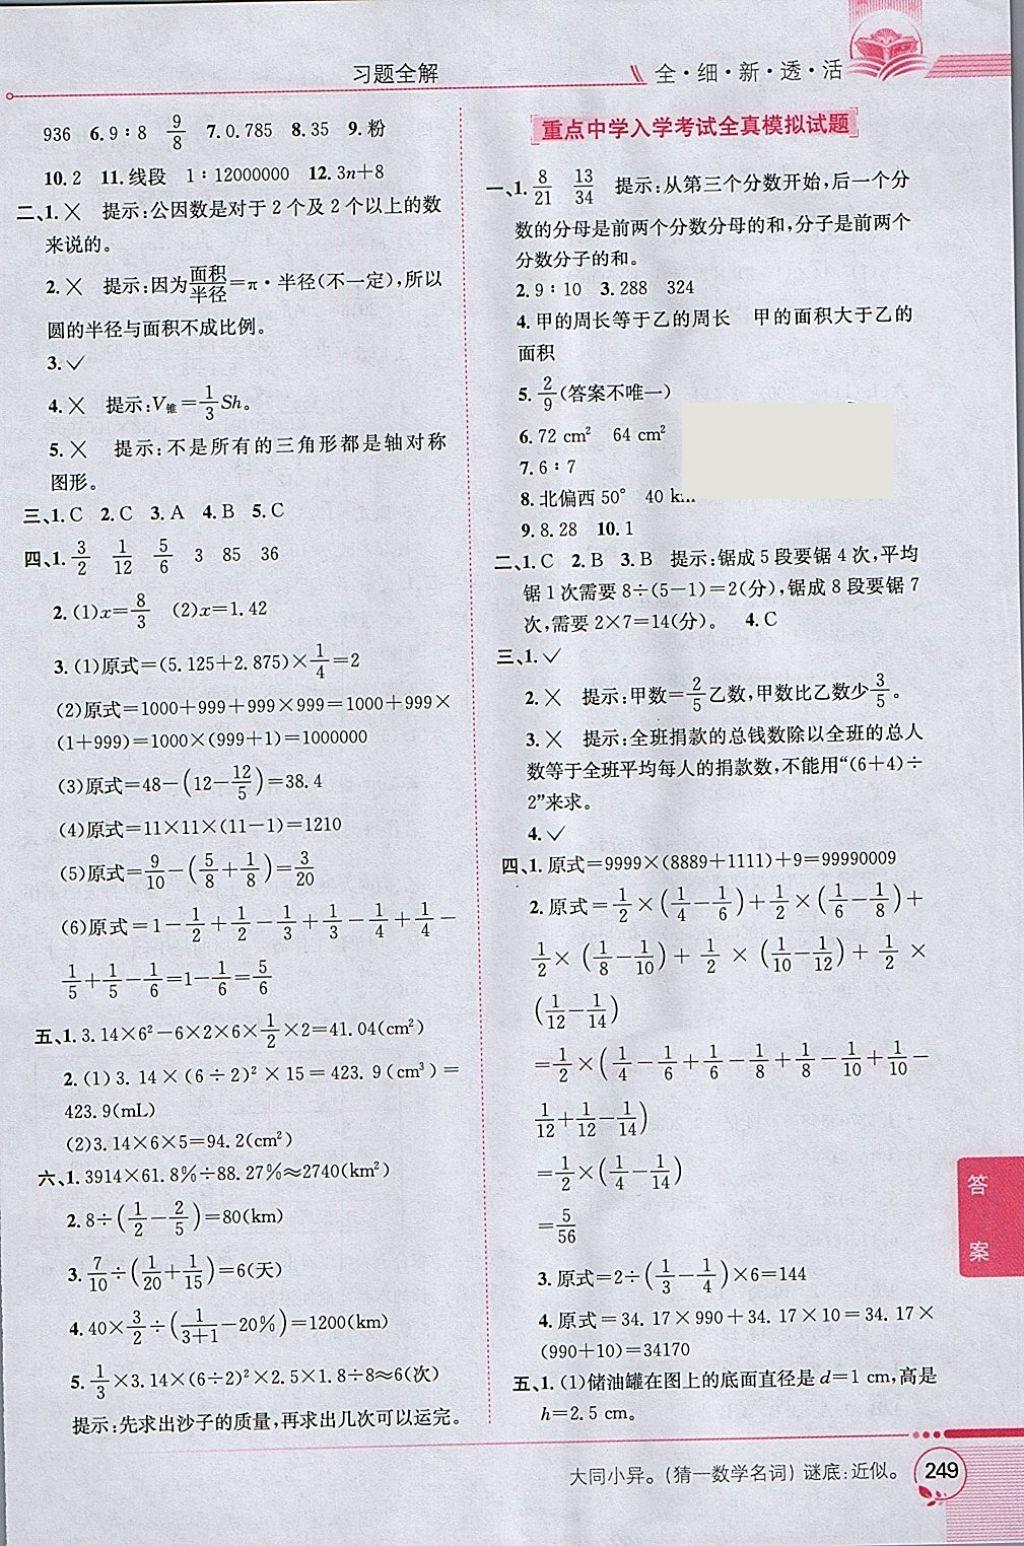 习题全解
全·细·新·透·活
936 6.9∶8 9/8 7.0.785 8.35 9.粉
10.2 11.线段 1∶12000000 12.3n+8
二、1.╳ 提示:公因数是对于2个及2个以上的数
来说的。
2.╳ 提示:因为面积/半径=π·半径(不一定),所以
圆的半径与面积不成比例。
3.✓
4.╳ 提示:V锥=1/3Sh。
5.╳ 提示:不是所有的三角形都是轴对称
图形。
三、1.C 2.C 3.A 4.B 5.C
四、1.3/2 1/12 5/6 3 85 36
2.(1)x=8/3 (2)x=1.42
3.(1)原式=(5.125+2.875)×1/4=2
(2)原式=1000+999+999×999=1000+999×
(1+999)=1000×(999+1)=1000000
(3)原式=48-(12-12/5)=38.4
(4)原式=11×11×(11-1)=1210
(5)原式=9/10-(5/8+1/8)=3/20
(6)原式=1-1/2+1/2-1/3+1/3-1/4+1/4-
1/5+1/5-1/6=1-1/6=5/6
五、1.3.14×6²-6×2×6×1/2×2=41.04(cm²)
2.(1)3.14×(6÷2)²×15=423.9(cm³)=
423.9(mL)
(2)3.14×6×5=94.2(cm²)
六、1.3914×61.8%÷88.27%≈2740(km²)
2.8÷(1/2-2/5)=80(km)
3.7/10÷(1/20+1/15)=6(天)
4.40×3/2÷(1/(3+1)-20%)=1200(km)
5.1/3×3.14×(6÷2)²×2.5×1.8÷8≈6(次)
提示:先求出沙子的质量,再求出几次可以运完。
重点中学入学考试全真模拟试题
一、1.8/21 13/34 提示:从第三个分数开始,后一个分
数的分母是前两个分数分母的和,分子是前两个
分数分子的和。
2.9∶10 3.288 324
4.甲的周长等于乙的周长 甲的面积大于乙的
面积
5.2/9(答案不唯一)
6.72 cm² 64 cm²
7.6∶7
8.北偏西50° 40 km
9.8.28 10.1
二、1.C 2.B 3.B 提示:锯成5段要锯4次,平均
锯1次需要8÷(5-1)=2(分),锯成8段要锯7
次,需要2×7=14(分)。 4.C
三、1.✓
2.╳ 提示:甲数=2/5乙数,甲数比乙数少3/5。
3.╳ 提示:全班捐款的总钱数除以全班的总人
数等于全班平均每人的捐款数,不能用“(6+4)÷
2”来求。
4.✓
四、1.原式=9999×(8889+1111)+9=99990009
2.原式=1/2×(1/4-1/6)+1/2×(1/6-1/8)+
1/2×(1/8-1/10)+1/2×(1/10-1/12)+1/2×
(1/12-1/14)
=1/2×(1/4-1/6+1/6-1/8+1/8-1/10+1/10-
1/12+1/12-1/14)
=1/2×(1/4-1/14)
=5/56
3.原式=2÷(1/3-1/4)×6=144
4.原式=34.17×990+34.17×10=34.17×
(990+10)=34170
五、1.(1)储油罐在图上的底面直径是d=1 cm,高是
h=2.5 cm。
答案
大同小异。(猜一数学名词)谜底:近似。
249